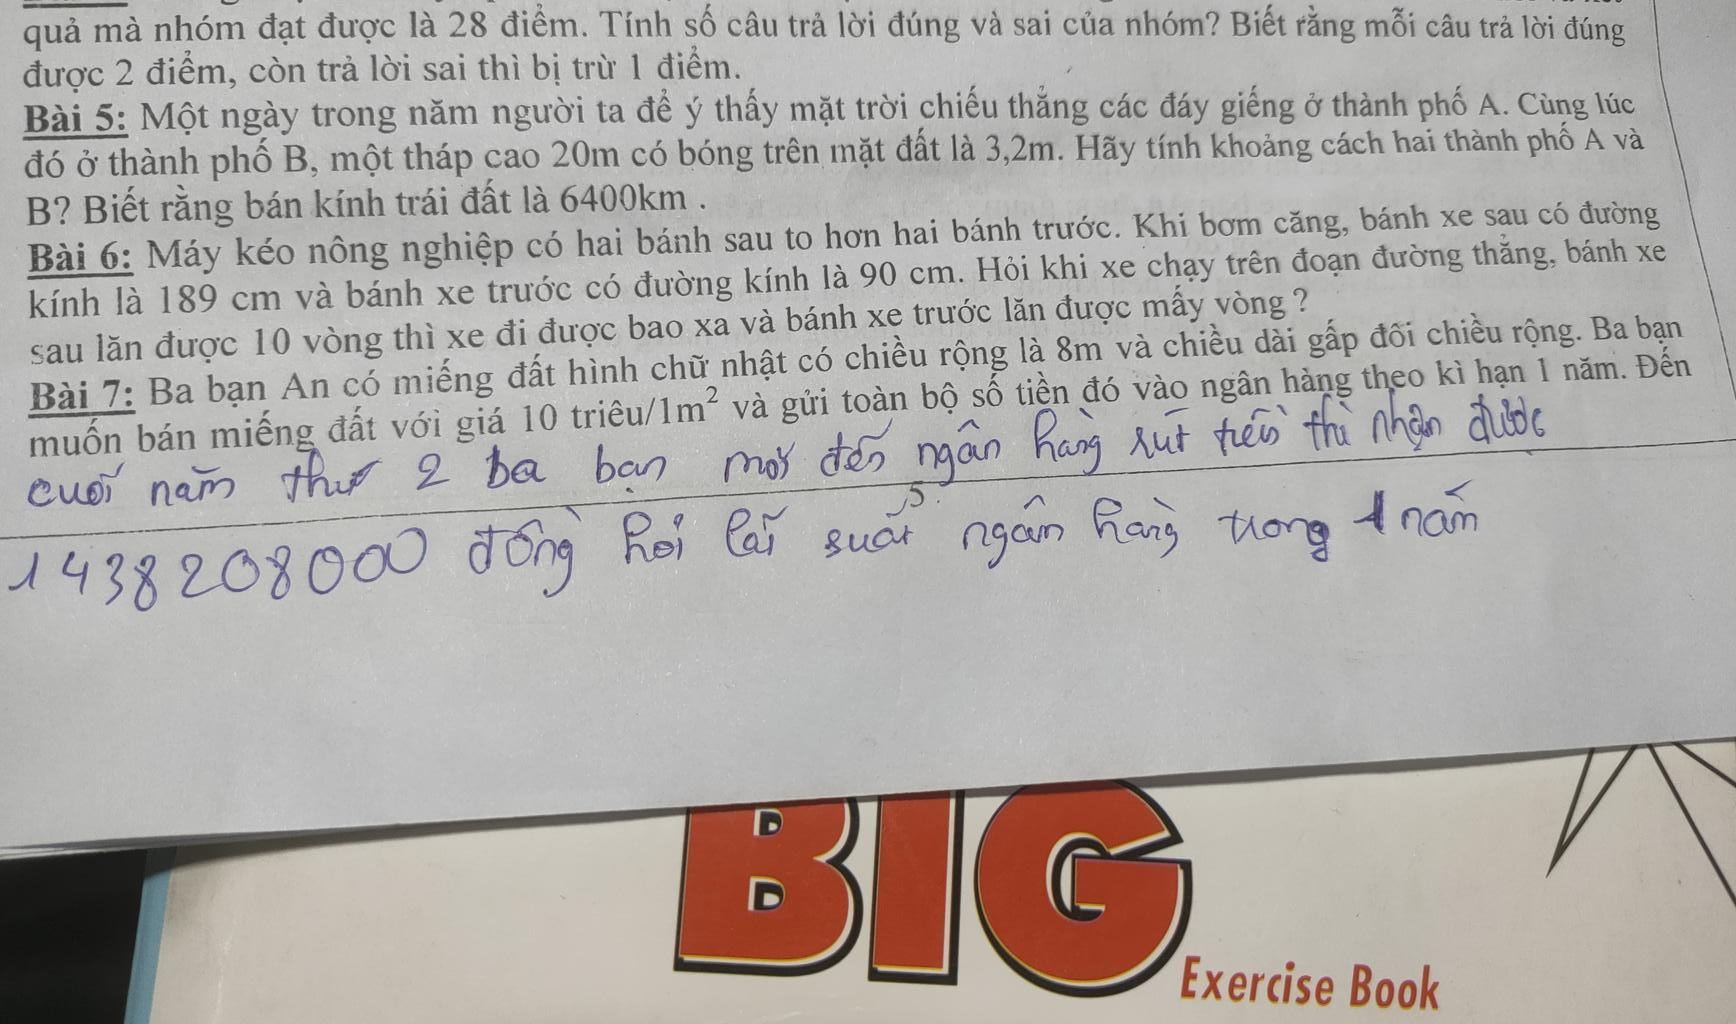 quả mà nhóm đạt được là 28 điểm. Tính số câu trả lời đúng và sai của nhóm? Biết rằng mỗi câu trả lời đúng
được 2 điểm, còn trả lời sai thì bị trừ 1 điểm.
Bài 5: Một ngày trong năm người ta để ý thấy mặt trời chiếu thẳng các đáy giếng ở thành phố A. Cùng lúc
đó ở thành phố B, một tháp cao 20m có bóng trên mặt đất là 3,2m. Hãy tính khoảng cách hai thành phố A và
B? Biết rằng bán kính trái đất là 6400km .
Bài 6: Máy kéo nông nghiệp có hai bánh sau to hơn hai bánh trước. Khi bơm căng, bánh xe sau có đường
kính là 189 cm và bánh xe trước có đường kính là 90 cm. Hỏi khi xe chạy trên đoạn đường thẳng, bánh xe
sau lăn được 10 vòng thì xe đi được bao xa và bánh xe trước lăn được mấy vòng ?
Bài 7: Ba bạn An có miếng đất hình chữ nhật có chiều rộng là 8m và chiều dài gấp đôi chiều rộng. Ba bạn
muốn bán miếng đất với giá 10 triêu/1m² và gửi toàn bộ số tiền đó vào ngân hàng theo kì hạn 1 năm. Đến
cuối năm thứ 2 ba bạn mới đến ngân hàng rút tiền thì nhận được
1438208000 đồng hỏi lãi suất ngân hàng trong 1 năm
5
BIG
Exercise Book